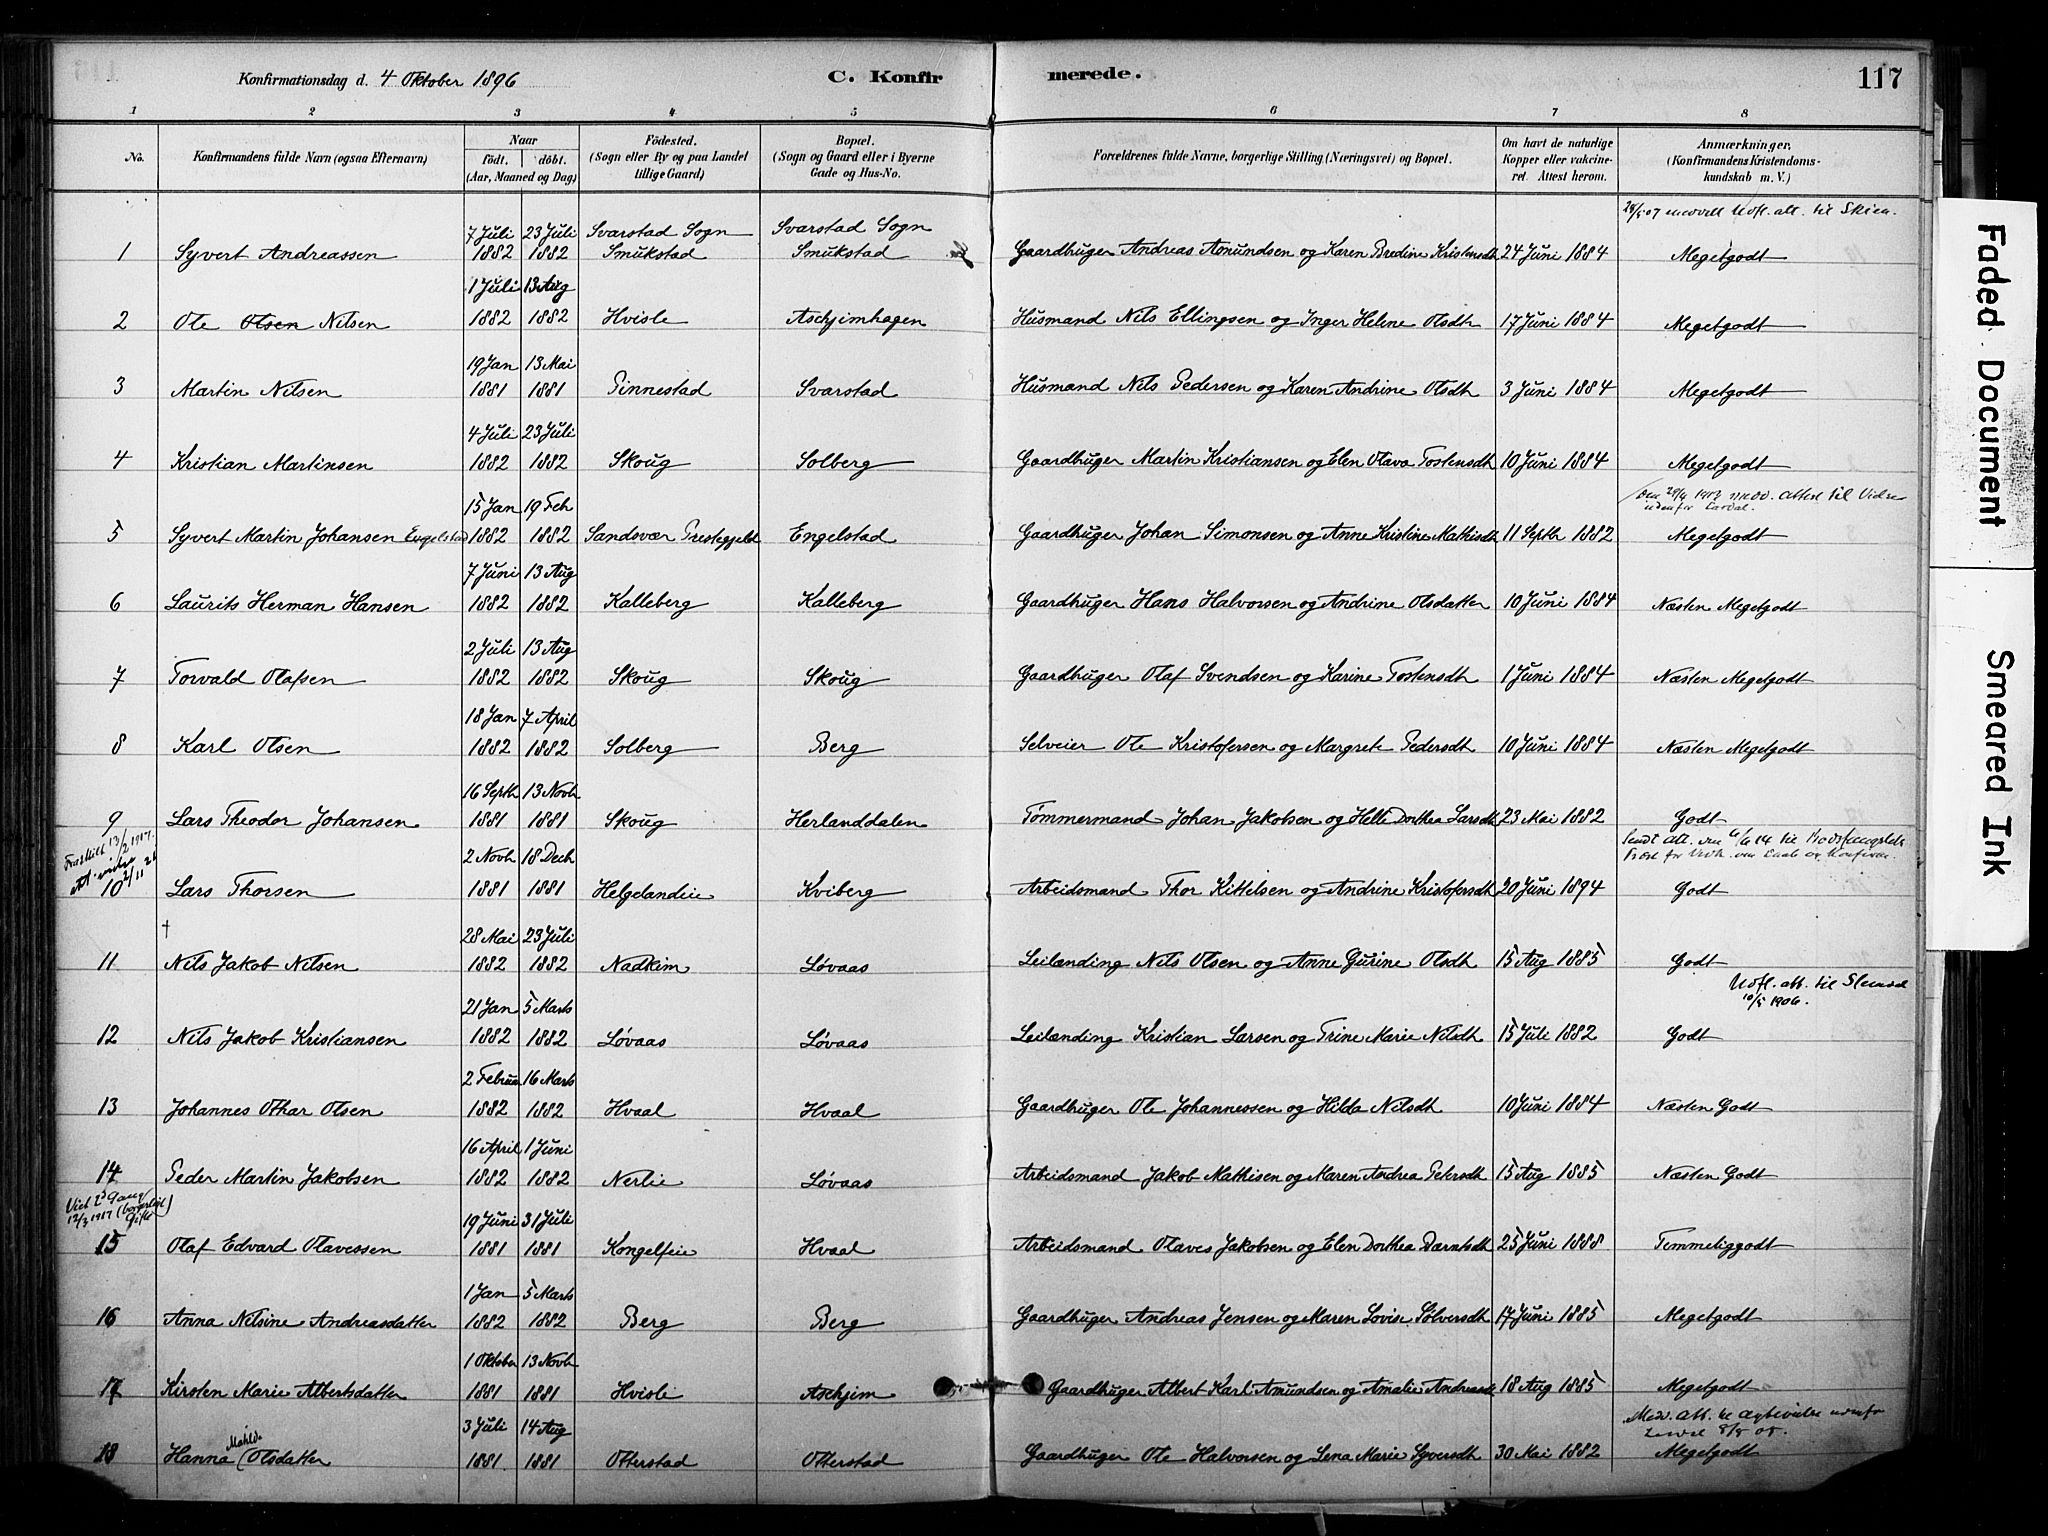 Konfirmationsdag d. 4 Oktober 1896 C. Konfirmerede. 117
1 2 3 4 5 6 7 8
No. Konfirmandens fulde Navn (ogsaa Efternavn) Naar født. døbt. (Aar, Maaned og Dag) Fødested. (Sogn eller By og paa Landet tillige Gaard) Bopæl. (Sogn og Gaard eller i Byerne Gade og Hus-No. Forældrenes fulde Navne, borgerlige Stilling (Næringsvei) og Bopæl. Om havt de naturlige Kopper eller vakcineret. Attest herom. Anmærkninger. (Konfirmandens Kristendomskundskab m. V.)
28/5 07 Udfl. att. til Skien.
1 Syvert Andreassen 7 Juli 1882 23 Juli 1882 Svarstad Sogn Smukstad Svarstad Sogn Smukstad Gaardbruger Andreas Amundsen og Karen Bredine Kristensdt 24 Juni 1884 Megetgodt
2 Ole Olsen Nilsen 1 Juli 1882 13 Aug 1882 Hvisle Aschjimhagen Husmand Nils Ellingsen og Inger Helene Olsdtr 17 Juni 1884 Megetgodt
3 Martin Nilsen 19 Jan 1881 13 Mai 1881 Pinnestad Svarstad Husmand Nils Pedersen og Karen Andrine Olsdtr 3 Juni 1884 Megetgodt
4 Kristian Martinsen 4 Juli 1882 23 Juli 1882 Skoug Solberg Gaardbruger Martin Kristiansen og Elen Olava Tostensdtr 10 Juni 1884 Megetgodt
attest til udenfor Lardal.
5 Syvert Martin Johansen Engelstad 15 Jan 1882 19 Feb 1882 Sandsvær Prestegjeld Engelstad Gaardbruger Johan Simonsen og Anne Kristine Mathisdt 11 Septb 1882 Megetgodt
6 Laurits Herman Hansen 7 Juni 1882 13 Aug 1882 Kalleberg Kalleberg Gaardbruger Hans Halvorsen og Andrine Olsdatter 10 Juni 1884 Næsten Megetgodt
7 Torvald Olafsen 2 Juli 1882 13 Aug 1882 Skoug Skoug Gaardbruger Olaf Svendsen og Karine Tostensdtr 1 Juni 1884 Næsten Megetgodt
8 Karl Olsen 18 Jan 1882 7 April 1882 Solberg Berg Selveier Ole Kristofersen og Margrete Pedersdtr 10 Juni 1884 Næsten Megetgodt
9 Lars Theodor Johansen 16 Septb 1881 13 Novb 1881 Skoug Herlanddalen Tømmermand Johan Jakobsen og Helle Dorthea Larsdt 23 Mai 1882 Godt
Fraskilt 13/2 1917.
10 Lars Thorsen 2 Novb 1881 18 Decb 1881 Helgelandeie Kviberg Arbeidsmand Thor Kittelsen og Andrine Kristofersdt 20 Juni 1894 Godt
†
11 Nils Jakob Nilsen 28 Mai 1882 23 Juli 1882 Nadkim Løvaas Leilænding Nils Olsen og Anne Gurine Olsdtr 15 Aug 1885 Godt
Udfl. att. til 10/5 1906.
12 Nils Jakob Kristiansen 21 Jan 1882 5 Marts 1882 Løvaas Løvaas Leilænding Kristian Larsen og Trine Marie Nilsdtr 15 Juli 1882 Godt
13 Johannes Othar Olsen 2 Februar 1882 16 Marts 1882 Hvaal Hvaal Gaardbruger Ole Johannessen og Hilda Nilsdtr 10 Juni 1884 Næsten Godt
14 Peder Martin Jakobsen 16 April 1882 1 Juni 1882 Nerlie Løvaas Arbeidsmand Jakob Mathisen og Maren Andrea Petersdt 15 Aug 1885 Næsten Godt
Viet 2den Gang 12/3 1917 (borgerlig Gifte)
15 Olaf Edvard Olavessen 19 Juni 1881 31 Juli 1881 Kongelfeie Hvaal Arbeidsmand Olaves Jakobsen og Elen Dorthea Bærntsdt 25 Juni 1888 Temmeliggodt
16 Anna Nilsine Andreasdatter 1 Jan 1882 5 Marts 1882 Berg Berg Gaardbruger Andreas Jensen og Maren Lovise Sølversdt 17 Juni 1885 Megetgodt
17 Kirsten Marie Albertsdatter 1 Oktober 1881 13 Novb 1881 Hvisle Aschjim Gaardbruger Albert Karl Amundsen og Amalie Andreasdt 18 Aug 1885 Megetgodt
18 Hanna Mahilde Olsdatter 3 Juli 1881 14 Aug 1881 Otterstad Otterstad Gaardbruger Ole Halvorsen og Lena Marie Syversdtr 30 Mai 1882 Megetgodt
Faded Document
Smeared Ink